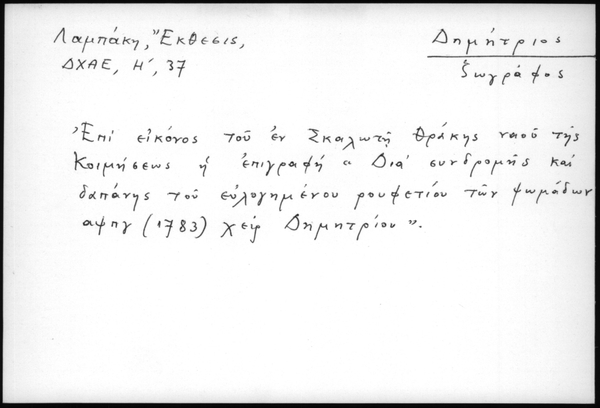 Λαμπάκη, Ἔκθεσις,
ΔΧΑΕ, Η΄, 37
Δημήτριος
ζωγράφος
Ἐπί εἰκόνος τοῦ ἐν Σκαλωτῇ Θράκης ναοῦ τῆς
Κοιμήσεως ἡ ἐπιγραφή " Διά συνδρομῆς καί
δαπάνης τοῦ εὐλογημένου ρουφετίου τῶν ψωμάδων
αψπγ (1783) χείρ Δημητρίου ".